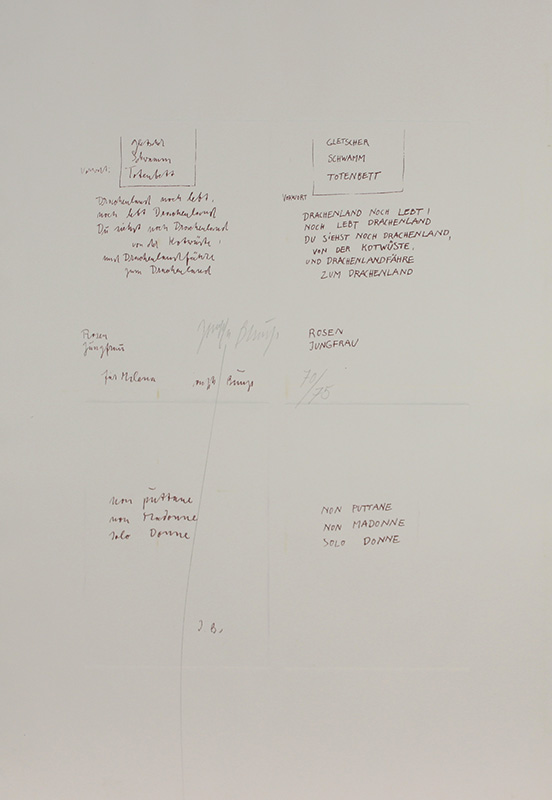 Gletscher
Schwamm
Totenbett
Vorwort:
Drachenland noch lebt,
noch lebt Drachenland
Du siehst noch Drachenland
von der Kotwüste,
und Drachenlandfähre
zum Drachenland
Rosen
Jungfrau
für Milena
non puttane
non Madonne
solo Donne
J B.
GLETSCHER
SCHWAMM
TOTENBETT
VORWORT
DRACHENLAND NOCH LEBT!
NOCH LEBT DRACHENLAND
DU SIEHST NOCH DRACHENLAND,
VON DER KOTWÜSTE,
UND DRACHENLANDFÄHRE
ZUM DRACHENLAND
ROSEN
JUNGFRAU
70/75
NON PUTTANE
NON MADONNE
SOLO DONNE